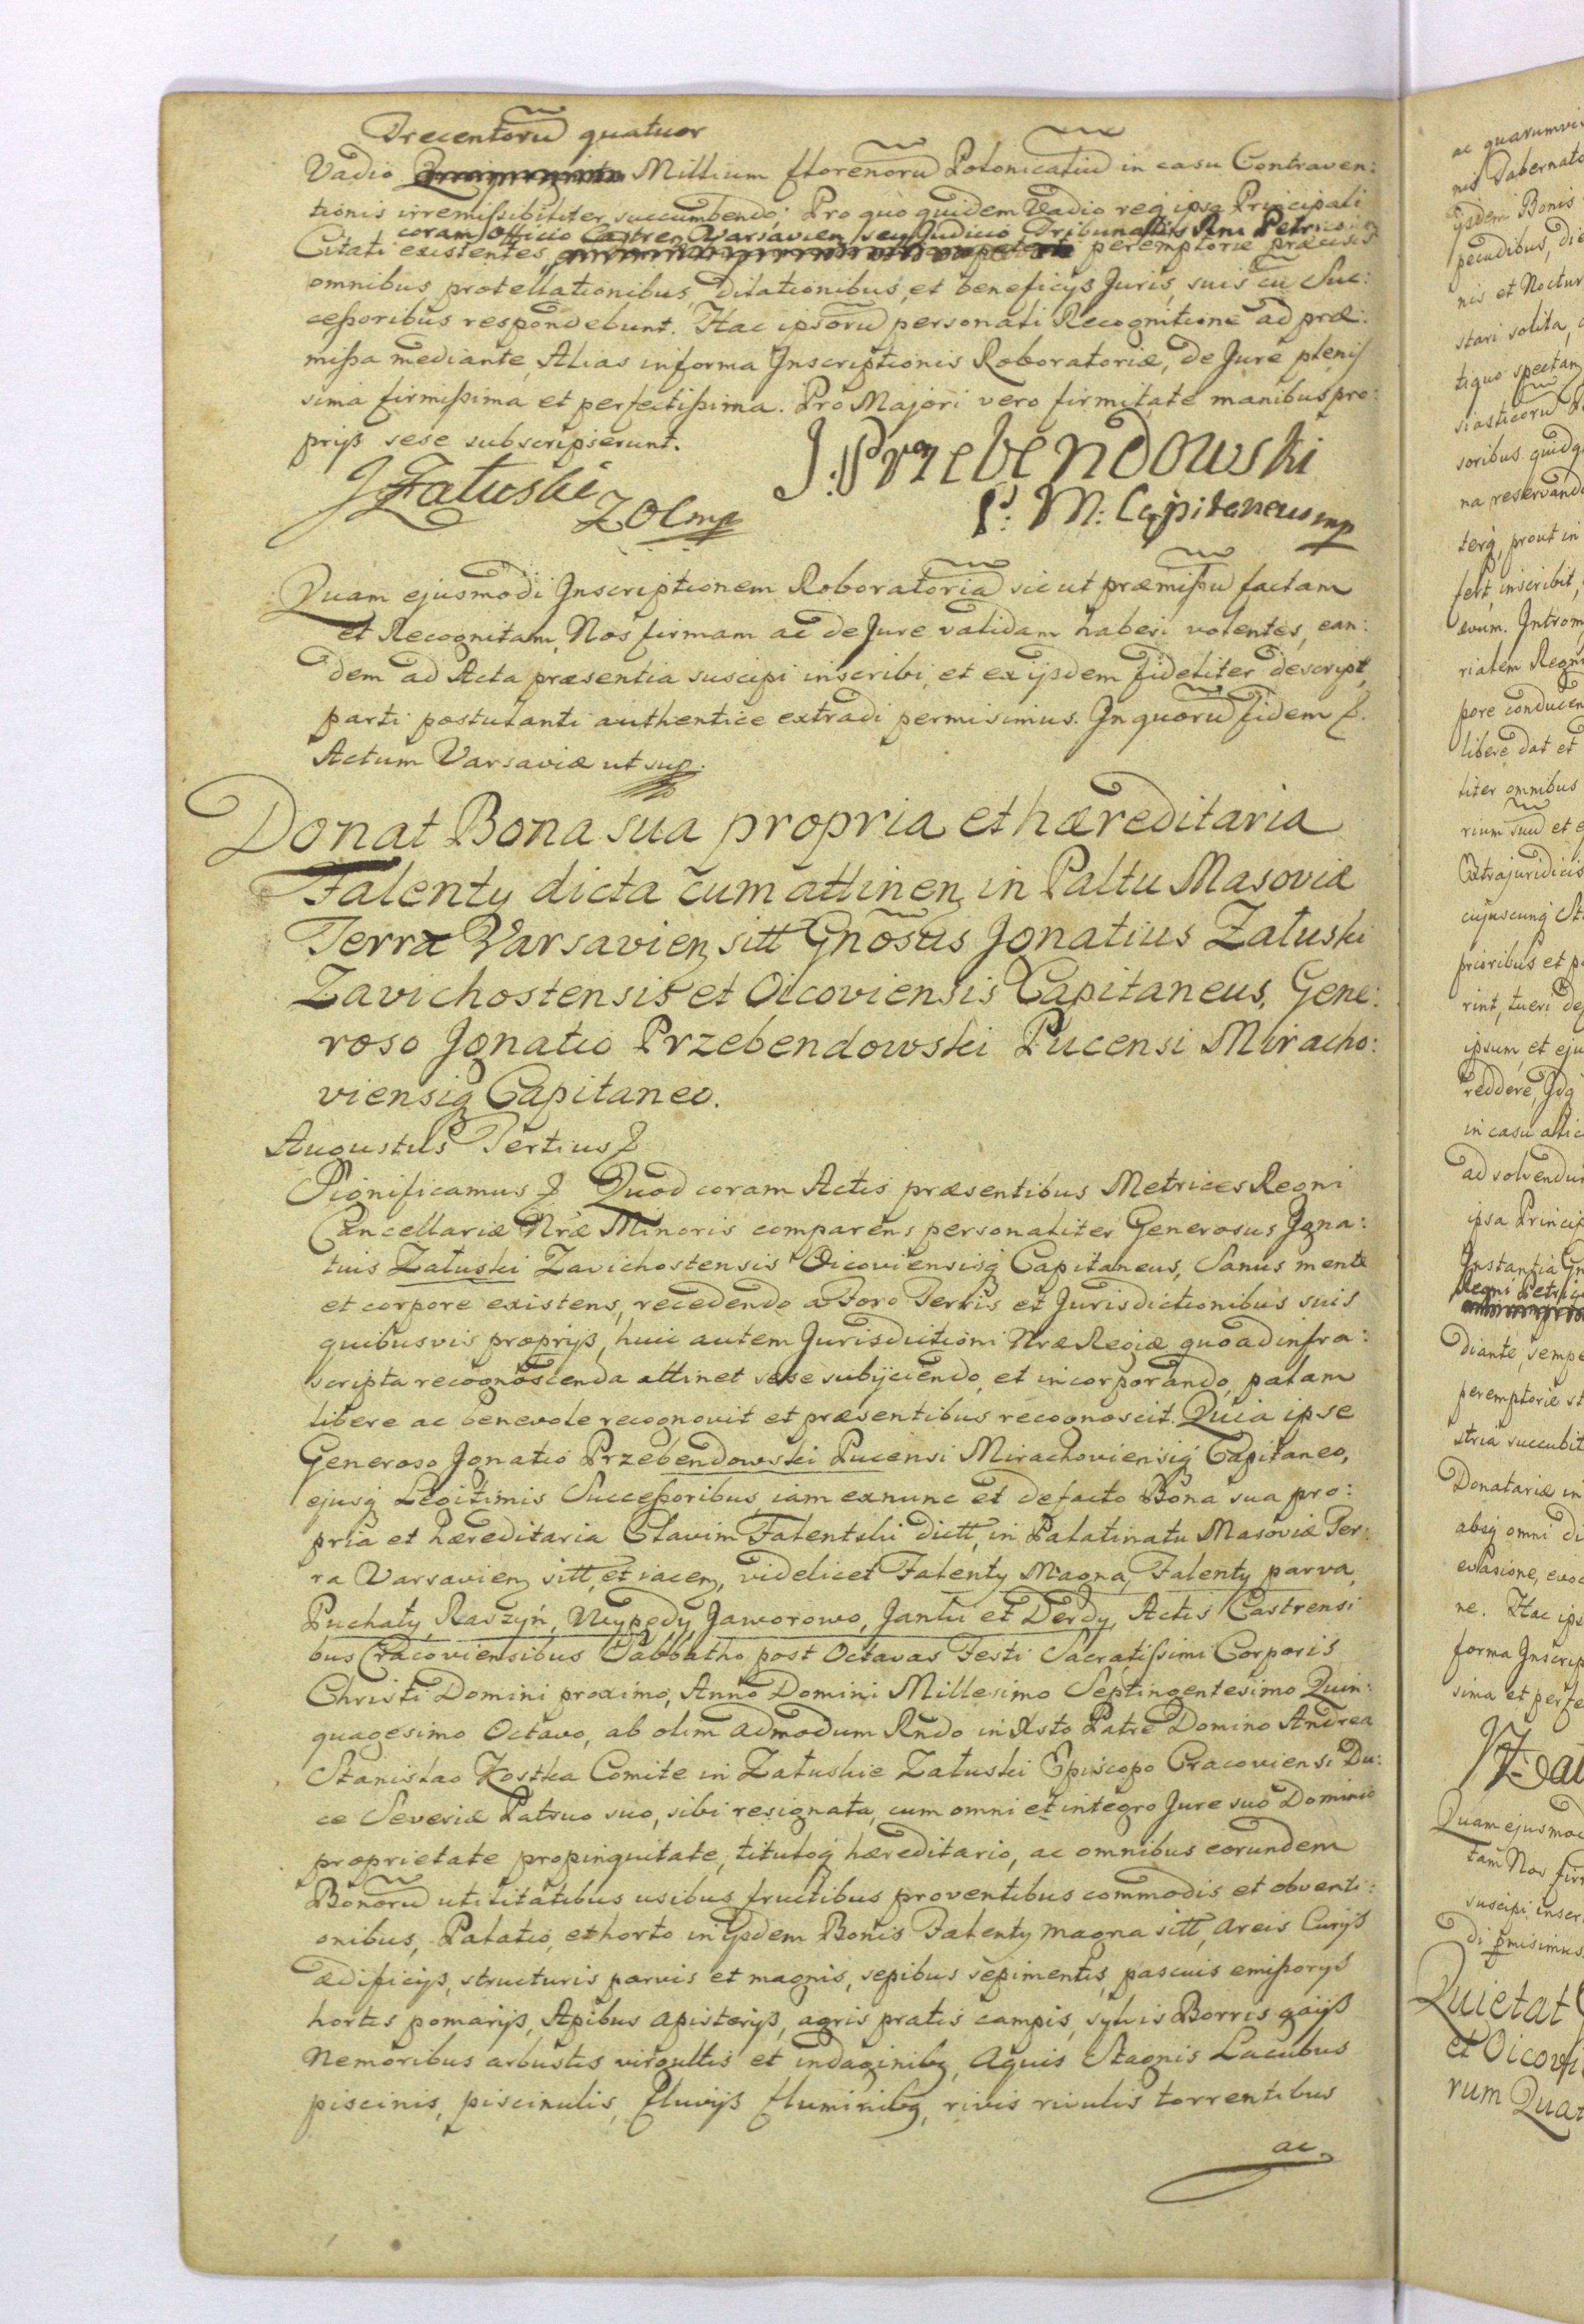 Trecentorũ quatuor
Vadio Millium florenorũ Polonicaliũ in casu Contraven:
tionis irremissibiliter succumbendo: Pro quo quidem Vadio req ipsa Principali
coram Officio Castren Varsavien seu Judicio Tribunalis Rni Petric
Citati existentes peremptorie præcisis
omnibus protellationibus, dilationibus, et beneficijs Juris, suis cũ Suc:
cessoribus respondebunt. Hac ipsorũ personali Recognitione ad præ:
missa mediante, Alias in forma Inscriptionis Roboratoriæ, de Jure plenis
sima firmissima et perfectissima. Pro Majori vero firmitate manibus pro:
prijs sese subscripserunt.
J Załuski
Z O C mp
J: Przebendowski
P: M: Capitaneus mp
Quam ejusmodi Inscriptionem Roboratoriã sic ut præmissũ factam
et Recognitam, Nos firmam ac de Jure validam haberi volentes, ean:
dem ad Acta præsentia suscipi inscribi, et ex ijsdem fideliter descript,
parti postulanti authentice extradi permisimus. In quorũ fidem &.
Actum Varsaviæ ut sup.
Donat Bona sua propria et hæreditaria
Falenty dicta cum attinen, in Paltu Masoviæ
Terræ Varsavien sitt Gnõsus Ignatius Załuski
Zavichostensis et Oicoviensis Capitaneus, Gene:
roso Ignatio Przebendowski Pucensi Miracho:
viensiq Capitaneo.
Augustus Tertius &
Significamus & Quod coram Actis præsentibus Metrices Regni
Cancellariæ Nræ Minoris comparens personaliter Generosus Igna:
tius Załuski Zavichostensis Oicoviensisq Capitaneus, Sanus mente
et corpore existens, recedendo a Foro Terris et Jurisdictionibus suis
quibusvis proprijs, huic autem Jurisdictioni Nræ Regiæ quoad infra:
scripta recognoscenda attinet sese subijciendo, et incorporando, palam
libere ac benevole recognovit et præsentibus recognoscit. Quia ipse
Generoso Ignatio Przebendowski Pucensi Mirachoviensiq Capitaneo,
ejusq Legitimis Successoribus, iam ex nunc et de facto Bona sua pro:
pria et hæreditaria Clavim Falentski dictt, in Palatinatu Masoviæ Ter:
ra Varsavien sitt, et iacen, videlicet Falenty Magna, Falenty parva,
Puchały, Raszyń, Wypędy, Jaworowo, Janki et Derdy, Actis Castrensi
bus Cracoviensibus Sabbatho post Octavas Festi Sacratissimi Corporis
Christi Domini proximo, Anno Domini Millesimo Septingentesimo Quin:
quagesimo Octavo, ab olim admodum Rndo in Xsto Patre Domino Andrea
Stanislao Kostka Comite in Załuskie Załuski Episcopo Cracoviensi Du:
ce Severiæ Patruo suo, sibi resignata, cum omni et integro Jure suo Dominio
proprietate propinquitate, tituloq hæreditario, ac omnibus eorundem
Bonorũ utilitatibus usibus fructibus proventibus commodis et obventi:
onibus, Palatio, et horto in ijsdem Bonis Falenty Magna sitt, areis Curijs
ædificijs, structuris parvis et magnis, sepibus sepimentis, pascuis emissorijs
hortis pomarijs, Apibus apisterijs, agris pratis campis, sylvis Borris gaijs
Nemoribus arbustis virgultis et indaginibq, Aquis Stagnis Lacubus
piscinis, piscinulis, fluvijs fluminibq, rivis rivulis torrentibus
ac
ac quarumvis
ijsdem Bonis
pecudibus,
nis et Noctur
stari solita,
tiquo spectan
siasticorũ
soribus quidq
na reservando
terq, prout in
inscribit,
ævum. Introm
riatem Regni
pore conducen
libere dat et
liter omnibus
rium suũ et e
Extrajudicis
cujuscunq St
prioribus et p
rint, tueri de
ipsum, et eju
reddere, Idq
in casu
ad solvendu
ipsa Princip
Instantia Gn
Regni Petric
diante, sempe
peremptorie st
stria succubit
Donatariæ in
absq omni di
evasione, evoc
ne. Hac ips
forma Inscrip
sima et perfe
Quam ejusmod
tam Nos fir
suscipi inser
di pmisimus
Quietat
et Oicovi
rum Quat